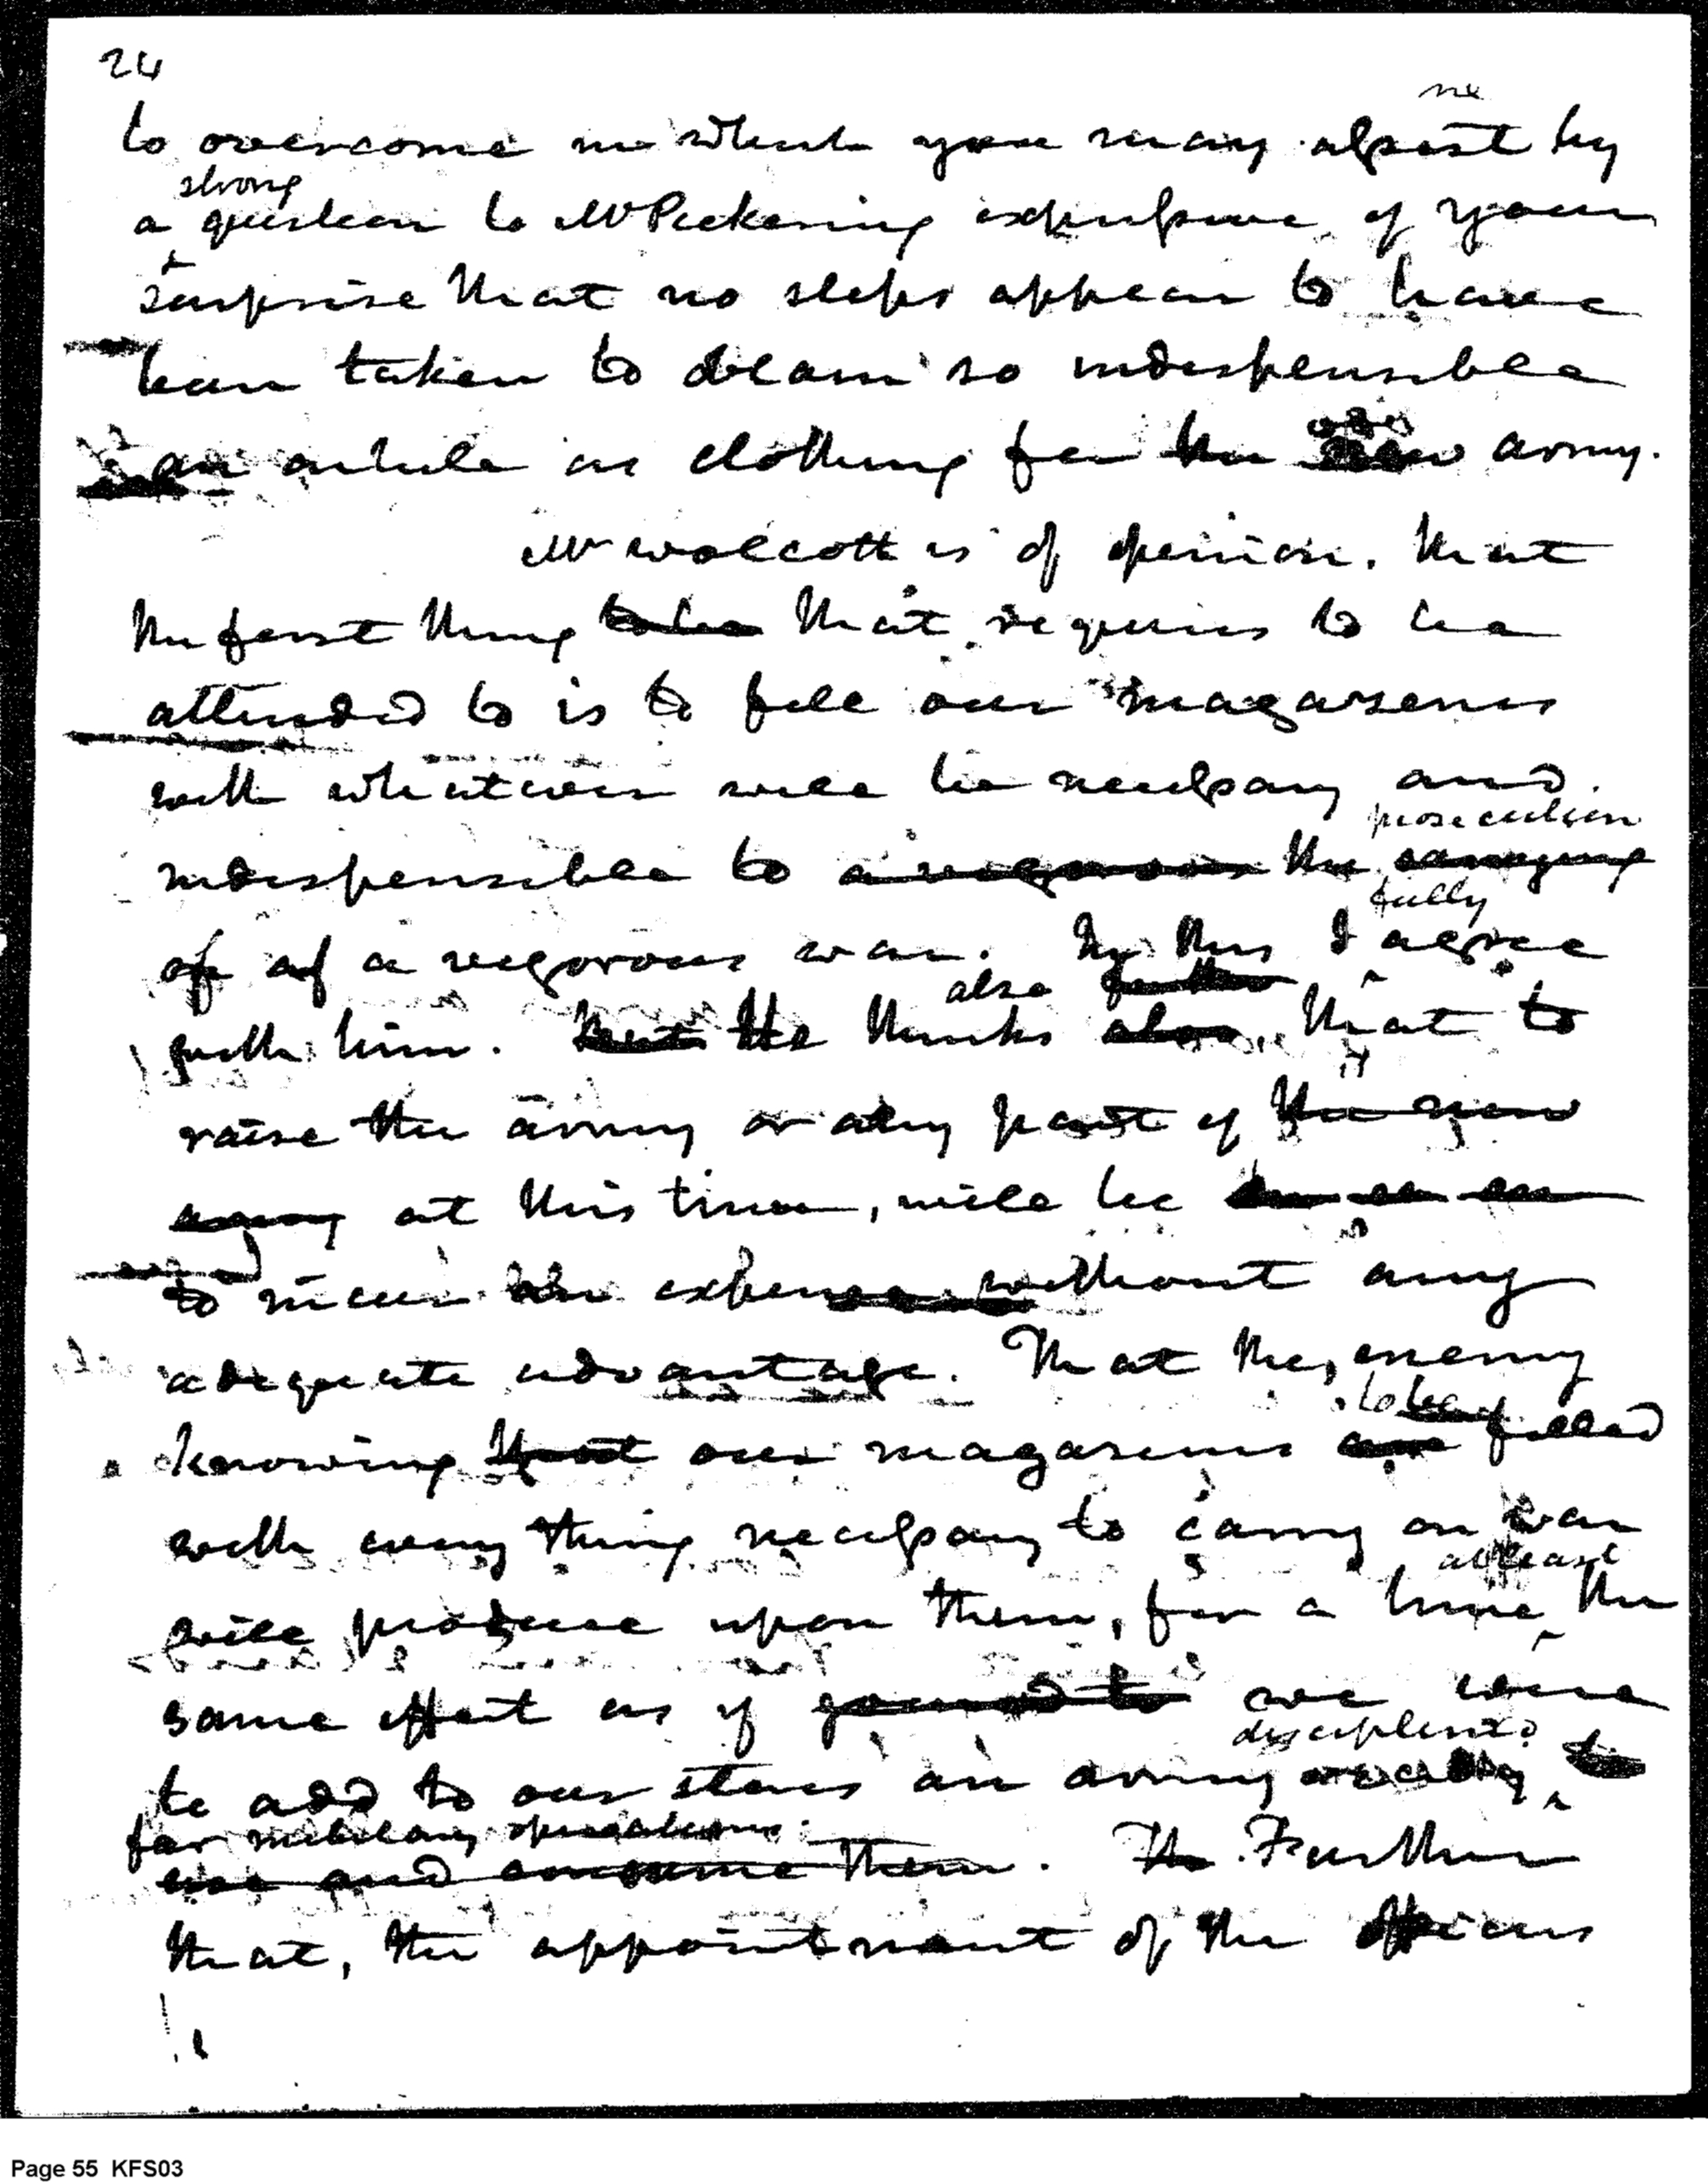 24
me
to overcome in which you may assist by
strong
a question to Mr Pickering expressive of your
surprise that no steps appear to have
been taken to obtain so indispensible
an article as clothing for the army.
Mr Wolcott is of opinion, that
the first thing to be that requires to be
attended to is to fill our magazenes
with whatever will be necessary and
prosecution
indispensible to a vigorous the carrying
fully
of of a vigorous war. In this I agree
also further
with him. But He thinks also, that to
it
raise the army or any part of the new
army at this time, will be
to incur an expense without any
adequate advantage. That the, enemy
to be
knowing that our magazenes are filled
with every thing necessary to carry on war
at least
will produce upon them, for a time the
same effect as if joined to we were
disciplined
to add to our stores an army ready to
for military operations.
use and consume them. Th Further
that, the appointment of the officers
Page 55 KFS03